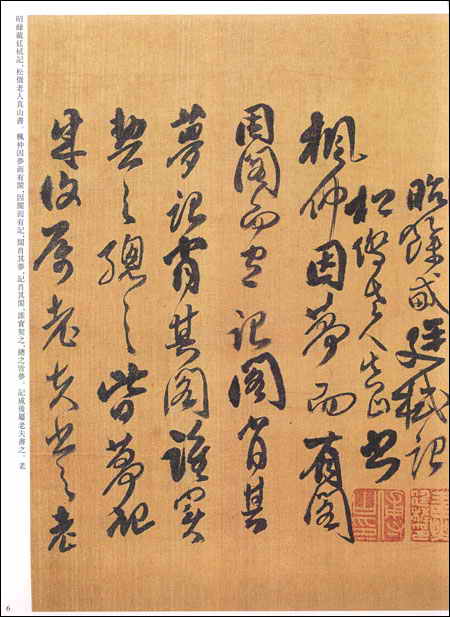 昭餘戴廷栻記
松僑老人真山書
楓仲因夢而有閣
因閣而有記閣肖其
夢記肖其閣誰實
契之總之皆夢記
成後屬老夫書之老
昭餘戴廷栻記，松僑老人真山書。楓仲因夢而有閣，因閣而有記，閣肖其夢，記肖其閣，誰實契之，總之皆夢。記成後屬老夫書之，老
6